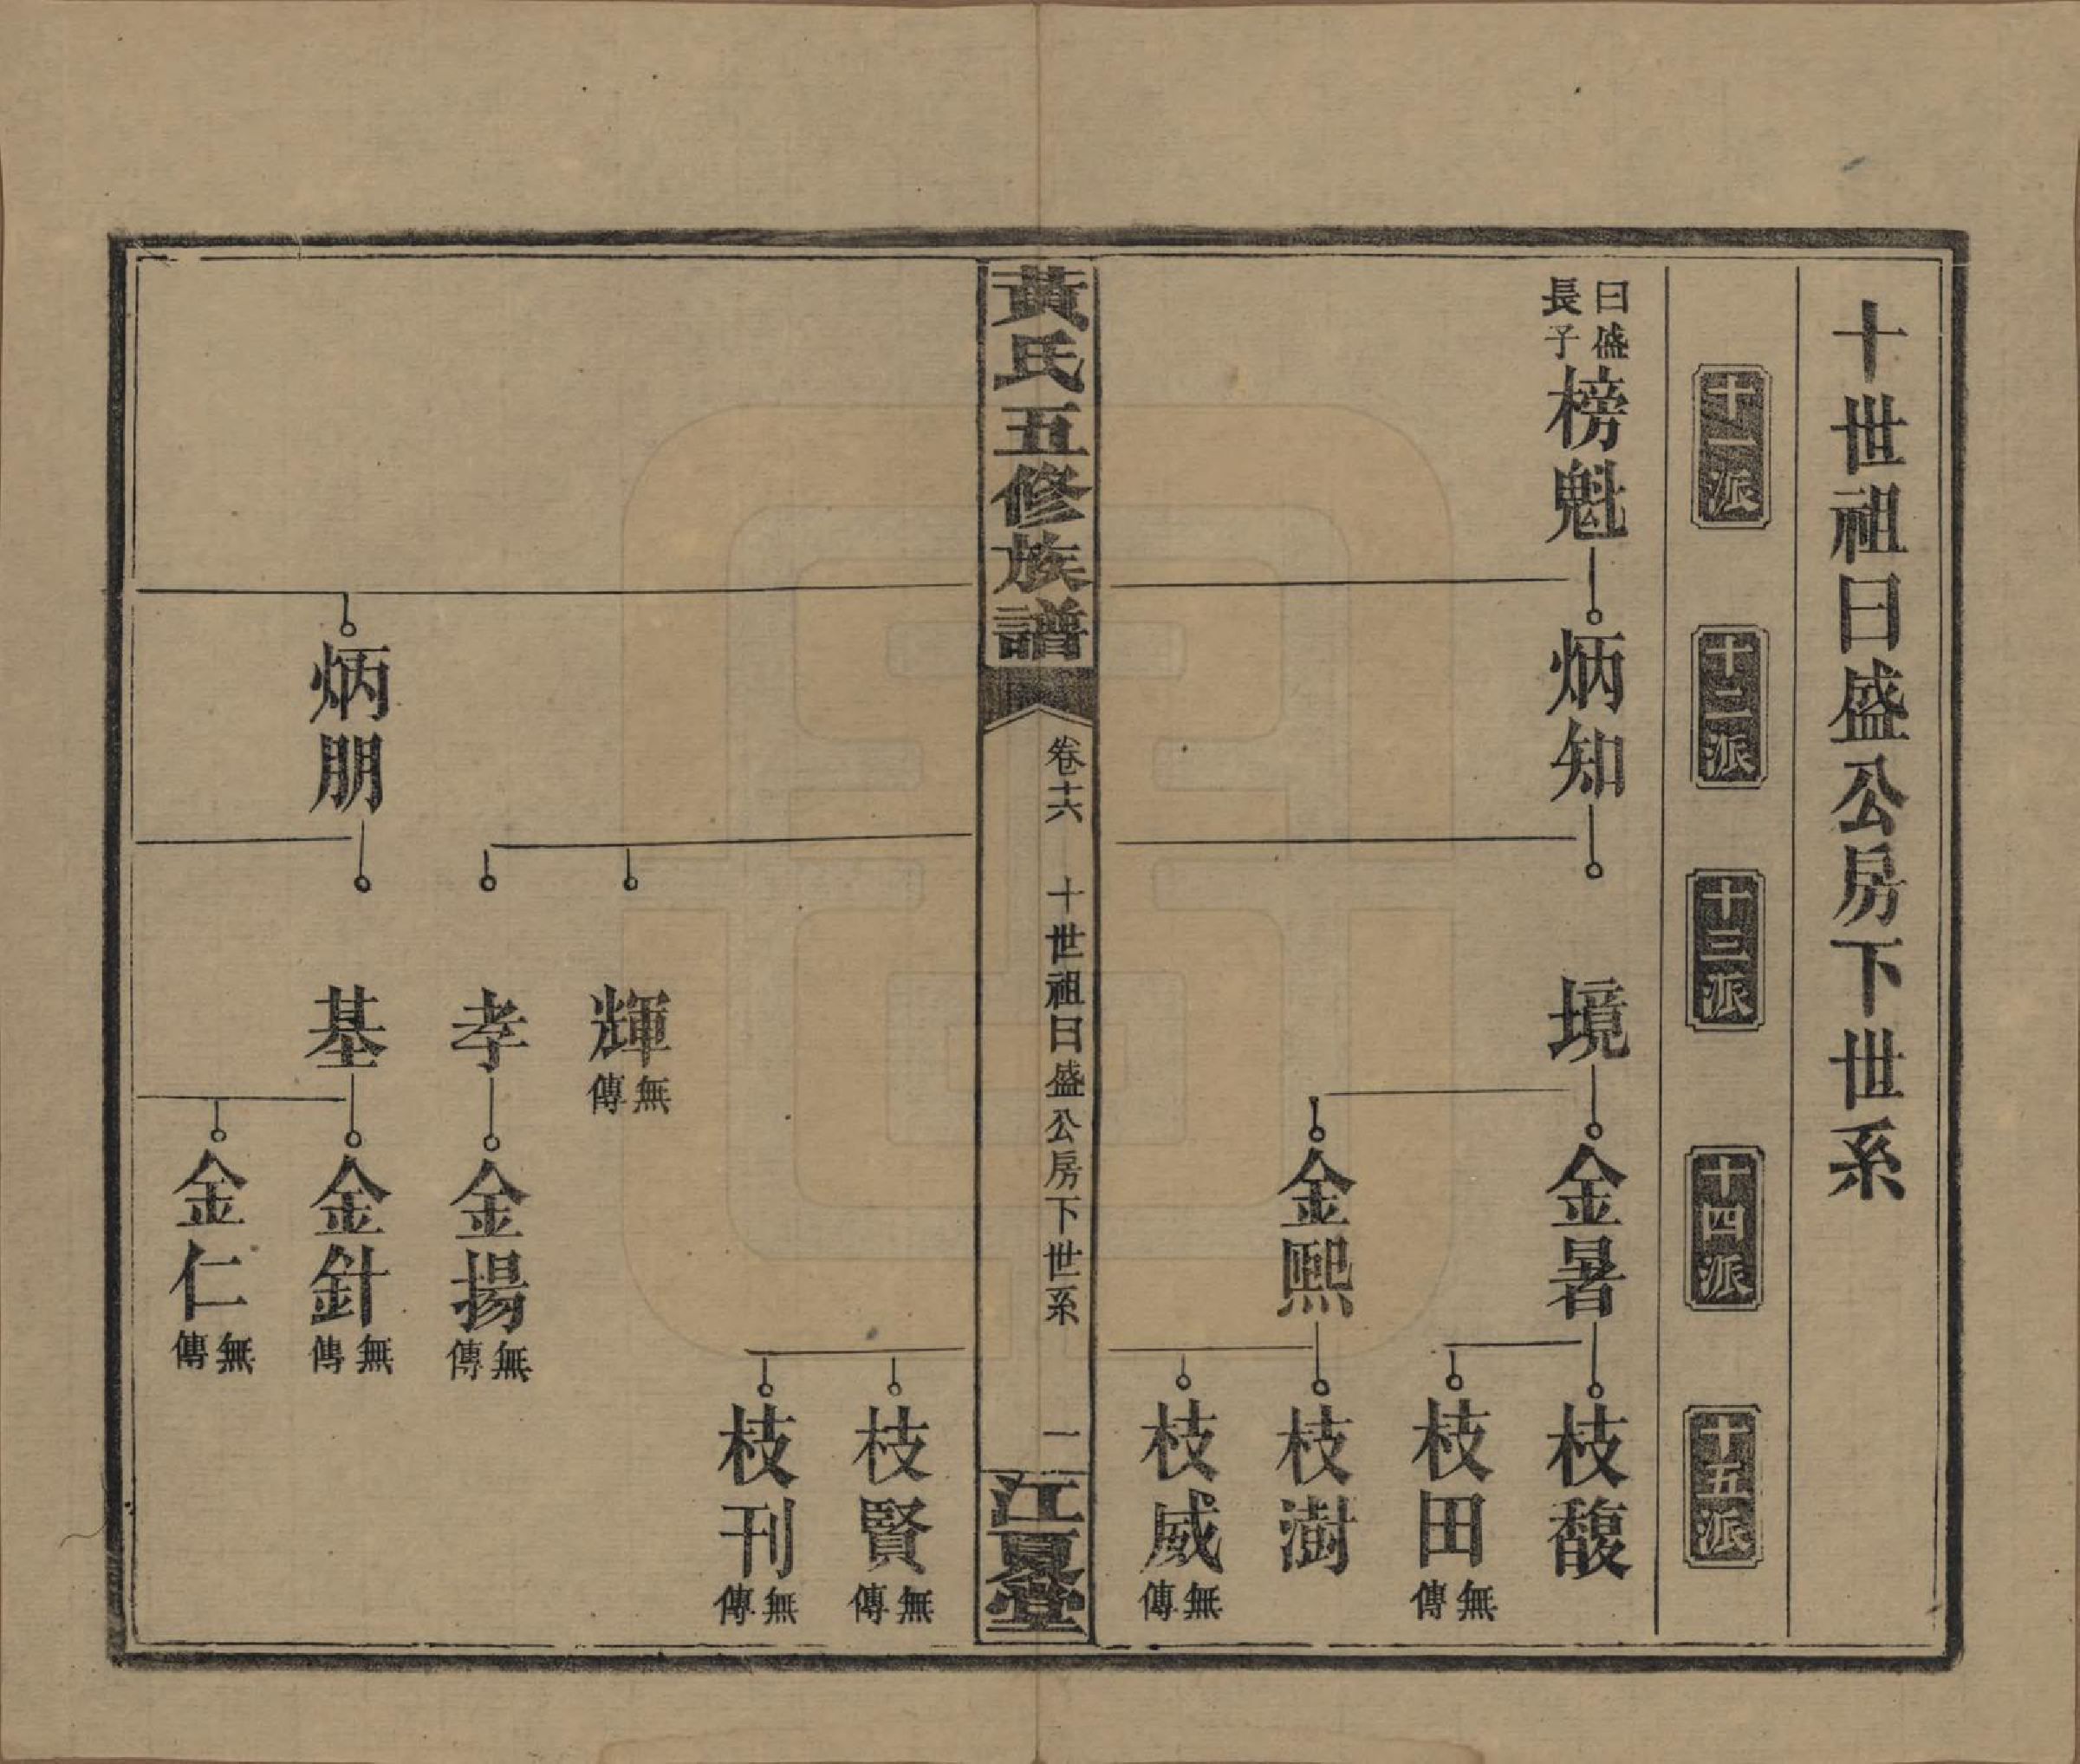 十世祖日盛公房下世系
十一派
十二派
十三派
十四派
十五派
日盛
長子
榜魁
炳知
境
金暑
枝馥
枝田
無傳
金熙
枝澍
枝威
無傳
黃氏五修族譜
卷十六
十世祖日盛公房下世系
一
江夏堂
枝賢
無傳
枝刊
無傳
輝
無傳
孝
金揚
無傳
炳朋
基
金針
無傳
金仁
無傳